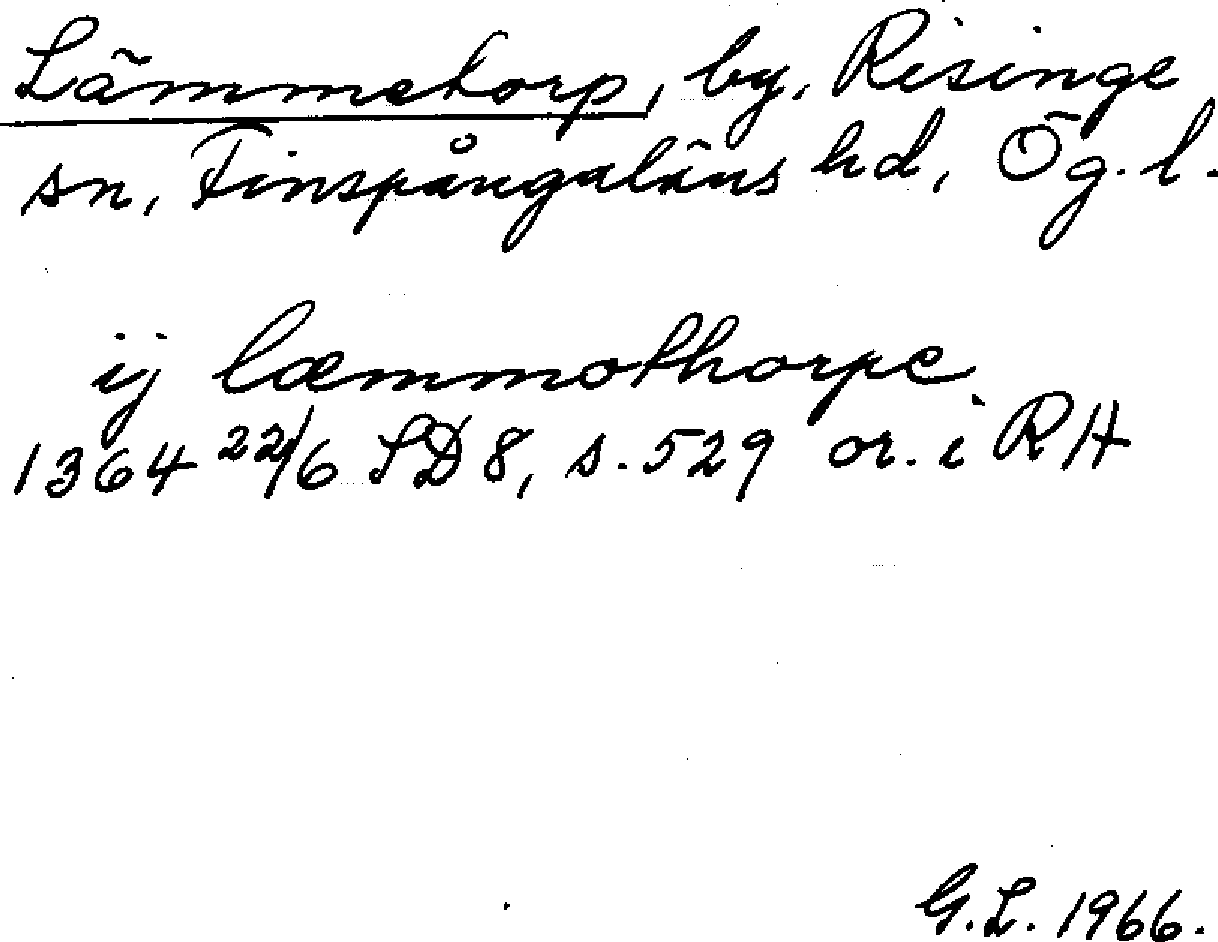 Lämmetorp, by, Risinge
sn, Finspångaläns hd, Ög. l.
ij læmmothorpe
1364 22/6 SD 8, s. 529 or. i RA
G.L. 1966.